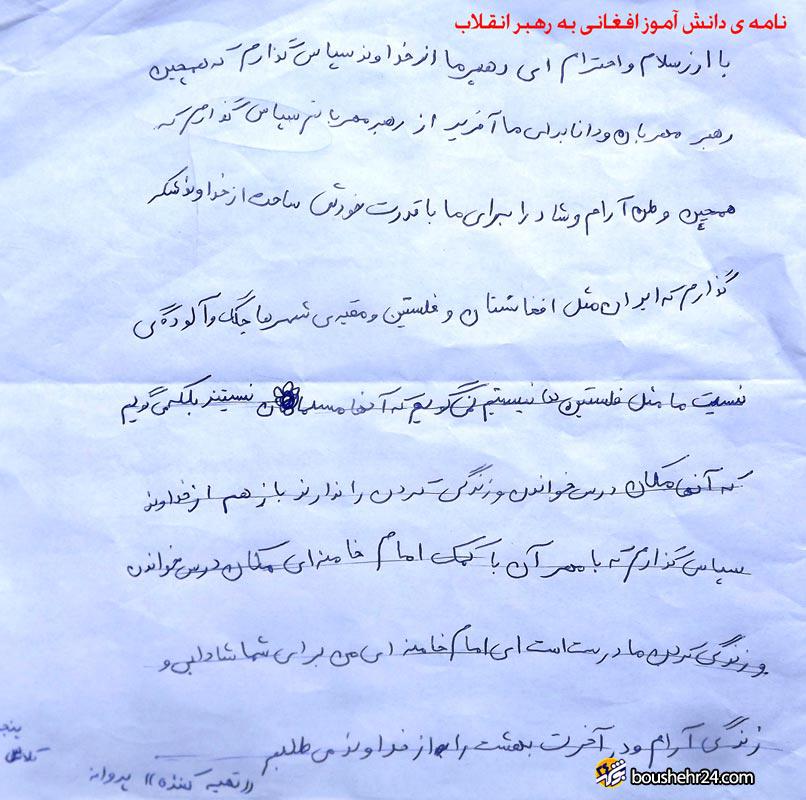 نامه ی دانش آموز افغانی به رهبر انقلاب
با ارز سلام و احترام ای رهبر ما از خداوند سپاس گذارم که همچین
رهبر مهربان و دانا برای ما آفرید از رهبر مهربانم سپاس گذارم که
همچین وطن آرام و شاد را برای ما با قدرت خودش ساخت از خداوند شکر
گذارم که ایران مثل افغانستان و فلستین و مقیه ی شهر ها جنگ و آلودگی
نیست ما مثل فلستین ها نیستیم نمی گویم که آنها مسلمان نیستند بلکه می گویم
که آنها مکان درس خواندن و زندگی کردن را ندارند باز هم از خداوند
سپاس گذارم که با مهر آن با کمک امام خامنه ای مکان درس خواندن
و زندگی کردن ما درست است ای امام خامنه ای من برای شما شادابی و
زندگی آرام و در آخرت بهشت را از خداوند می طلبم
((تهیه کننده)) پروانه
پنجم
کلاس
boushehr24.com